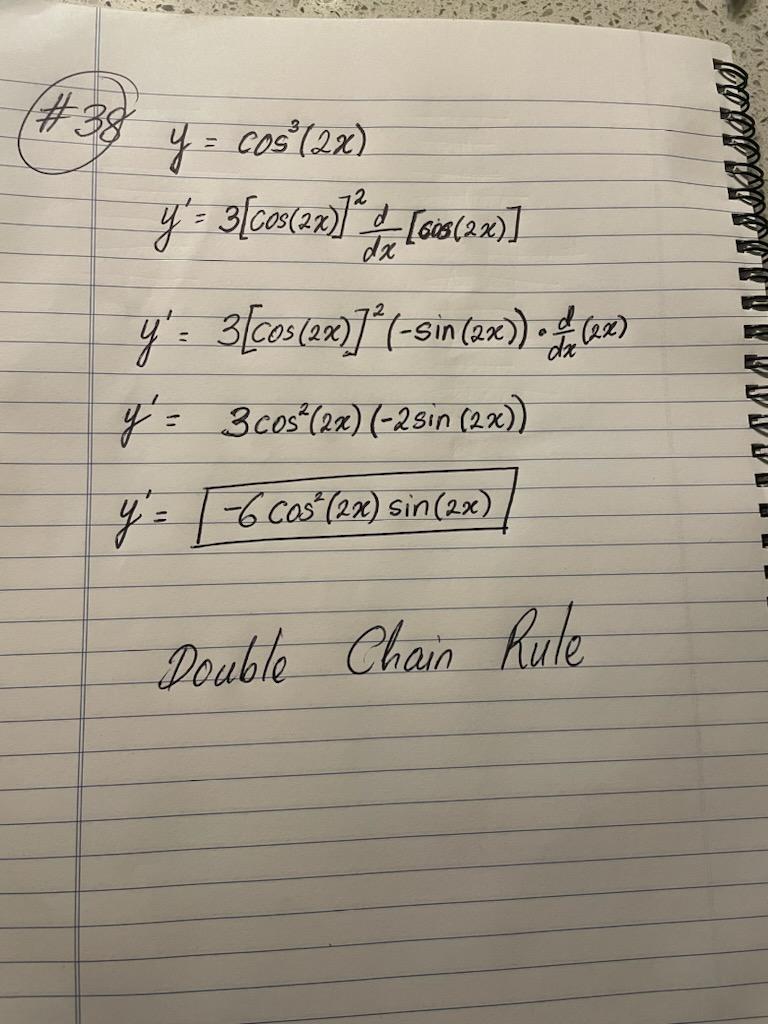 #38
y = cos³(2x)
y' = 3[cos(2x)]² d/dx [cos(2x)]
y' = 3[cos(2x)]² (-sin(2x)) • d/dx (2x)
y' = 3cos²(2x) (-2sin(2x))
y' = -6 cos²(2x) sin(2x)
Double Chain Rule